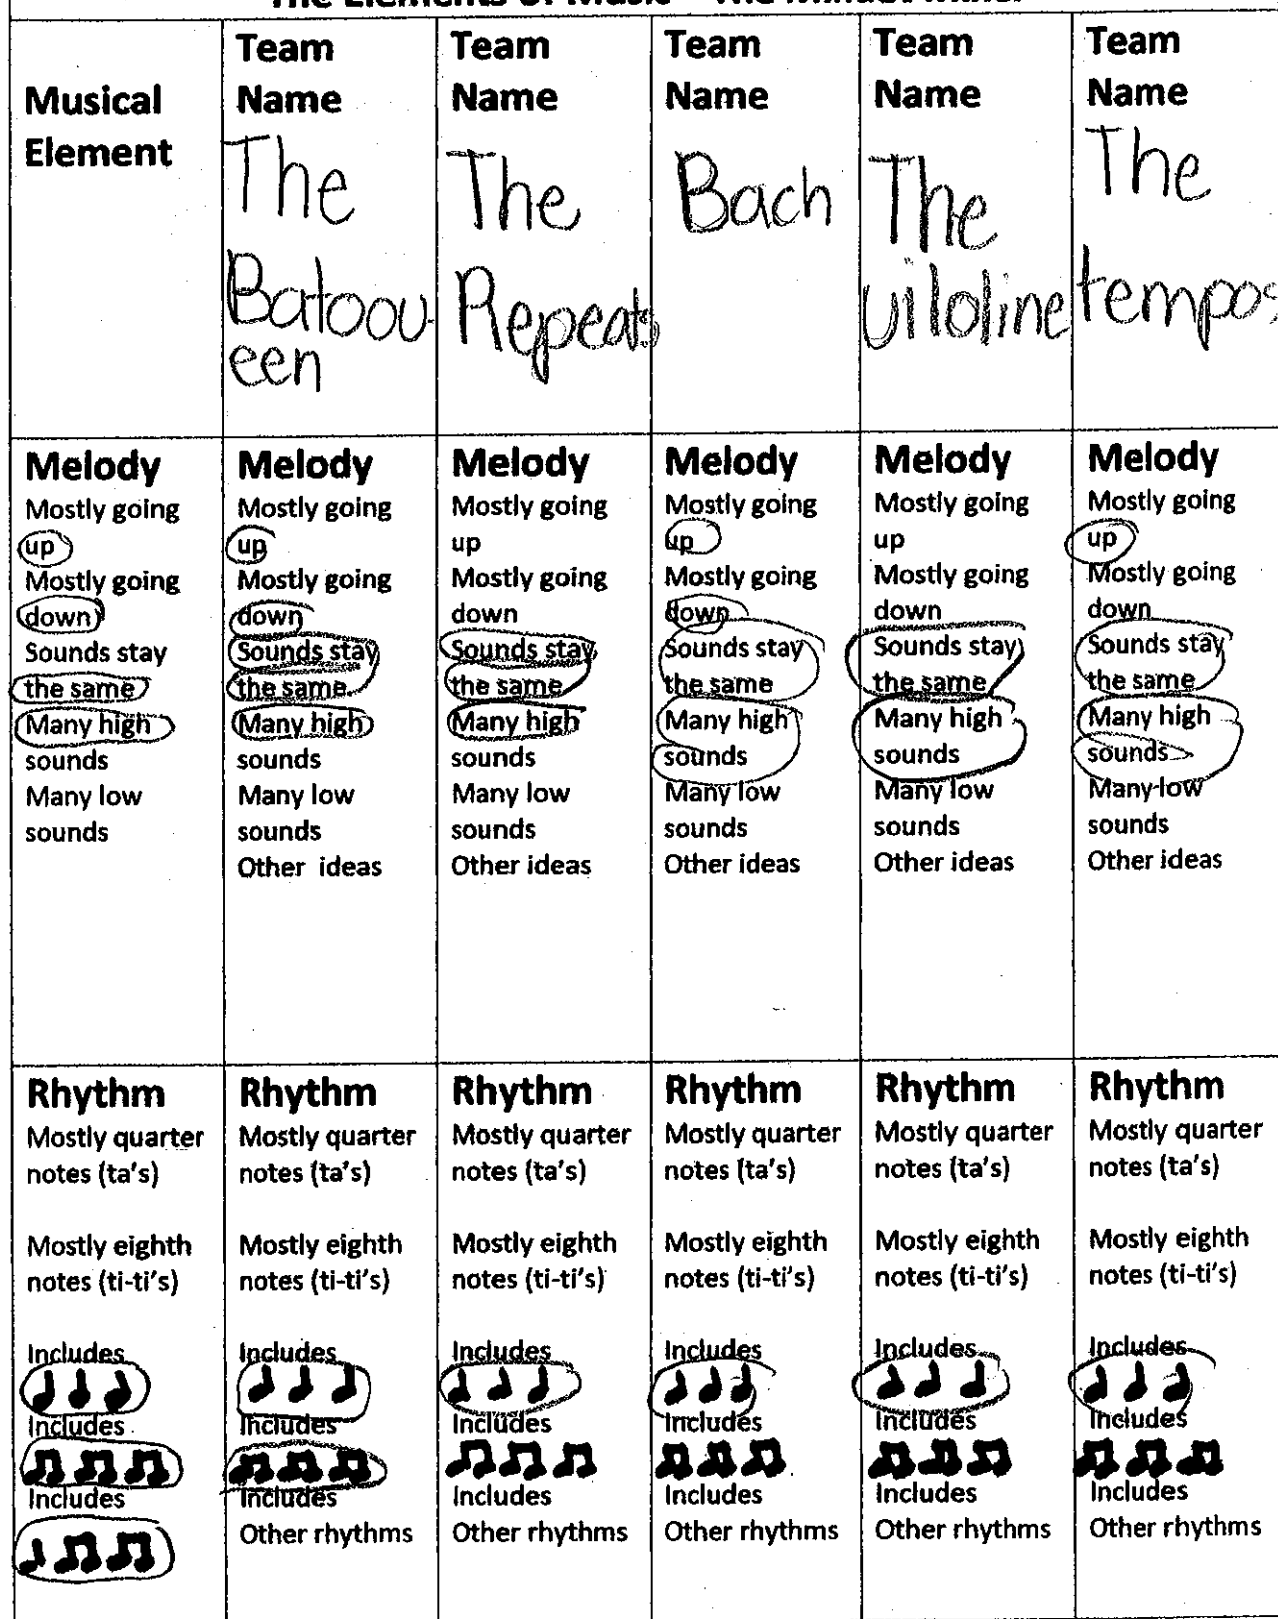 The Elements of Music
Musical
Element
Team
Name
The
Batoou-
een
Team
Name
The
Repeats
Team
Name
Bach
Team
Name
The
uiloline
Team
Name
The
tempos
Melody
Mostly going
up
Mostly going
down
Sounds stay
the same
Many high
sounds
Many low
sounds
Melody
Mostly going
up
Mostly going
down
Sounds stay
the same
Many high
sounds
Many low
sounds
Other ideas
Melody
Mostly going
up
Mostly going
down
Sounds stay
the same
Many high
sounds
Many low
sounds
Other ideas
Melody
Mostly going
up
Mostly going
down
Sounds stay
the same
Many high
sounds
Many low
sounds
Other ideas
Melody
Mostly going
up
Mostly going
down
Sounds stay
the same
Many high
sounds
Many low
sounds
Other ideas
Melody
Mostly going
up
Mostly going
down
Sounds stay
the same
Many high
sounds
Many low
sounds
Other ideas
Rhythm
Mostly quarter
notes (ta's)
Mostly eighth
notes (ti-ti's)
Includes
Includes
Includes
Rhythm
Mostly quarter
notes (ta's)
Mostly eighth
notes (ti-ti's)
Includes
Includes
Includes
Other rhythms
Rhythm
Mostly quarter
notes (ta's)
Mostly eighth
notes (ti-ti's)
Includes
Includes
Includes
Other rhythms
Rhythm
Mostly quarter
notes (ta's)
Mostly eighth
notes (ti-ti's)
Includes
Includes
Includes
Other rhythms
Rhythm
Mostly quarter
notes (ta's)
Mostly eighth
notes (ti-ti's)
Includes
Includes
Includes
Other rhythms
Rhythm
Mostly quarter
notes (ta's)
Mostly eighth
notes (ti-ti's)
Includes
Includes
Includes
Other rhythms